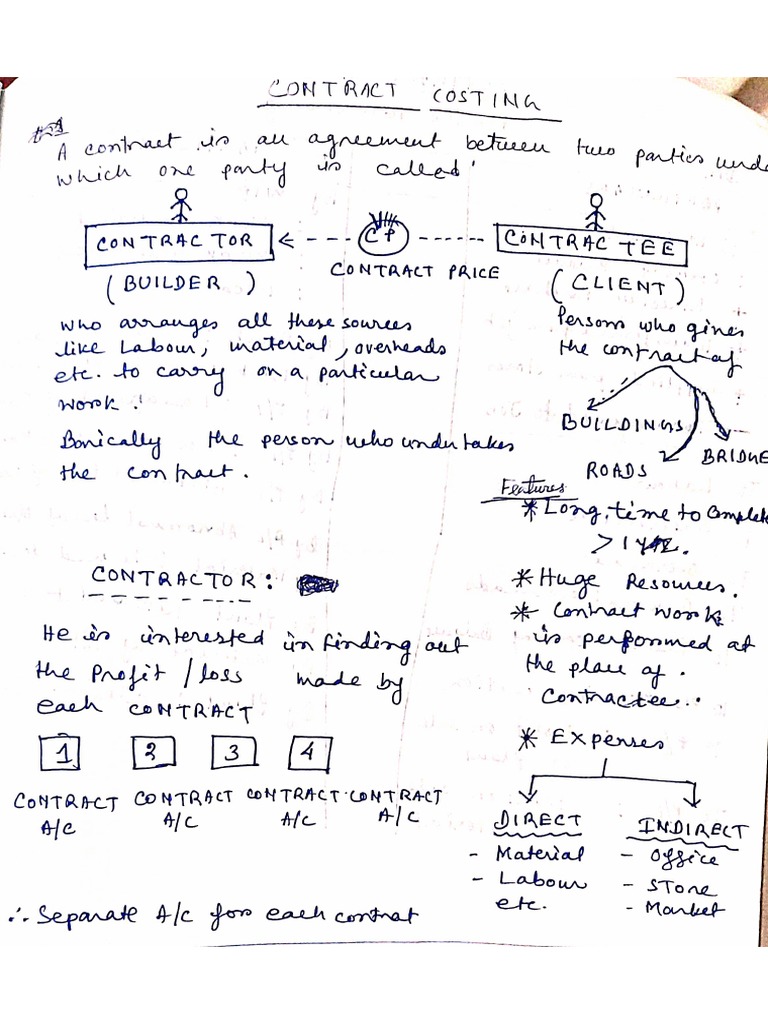 CONTRACT COSTING
A contract is an agreement between two parties unde
which one party is called
CONTRACTOR
CP
CONTRACTEE
CONTRACT PRICE
(BUILDER)
(CLIENT)
who arranges all these sources
like Labour, material, overheads
etc. to carry on a particular
work.
Bonically the person who undertakes
the contract.
Persons who gives
the contract of
BUILDINGS
ROADS
BRIDGE
Features
* Long time to Complete
> 1 yr.
* Huge Resources.
* Contract work
is performed at
the place of
Contractee.
* Expenses
DIRECT
- Material
- Labour
etc.
INDIRECT
- Office
- Store
- Market
CONTRACTOR:
He is interested in finding out
the Profit / loss made by
each CONTRACT
1 2 3 4
CONTRACT CONTRACT CONTRACT CONTRACT
A/C A/C A/C A/C
∴ Separate A/c for each contrat